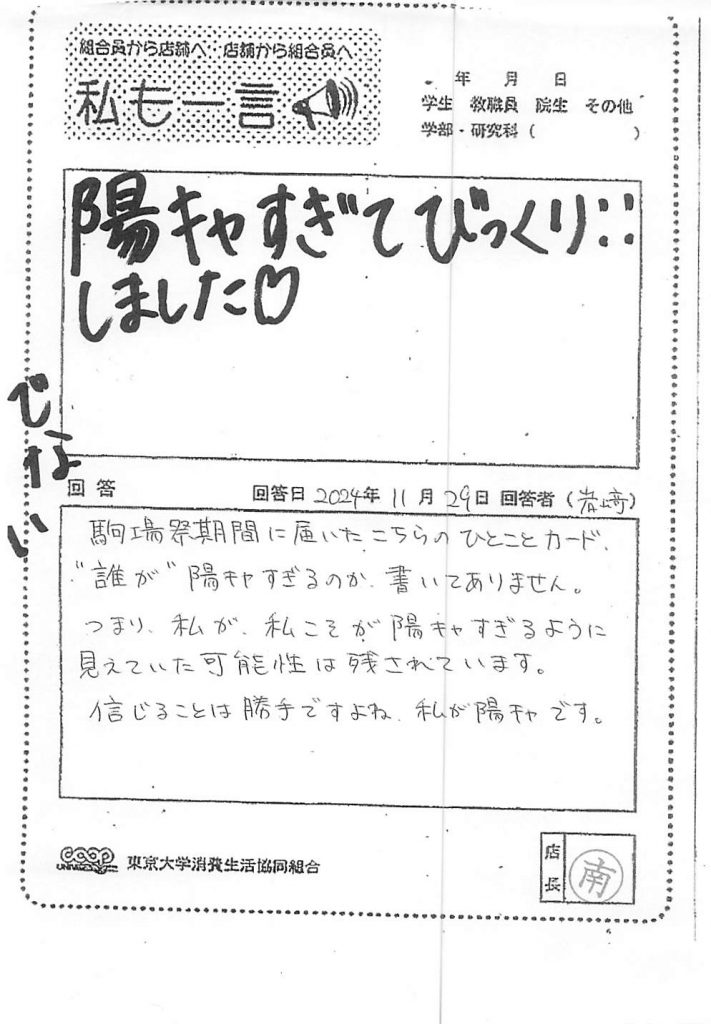 組合員から店舗へ 店舗から組合員へ
私も一言
年 月 日
学生 教職員 院生 その他
学部・研究科( )
陽キャすぎてびっくり
しました♡
でない
回答 回答日 2024年 11月 29日 回答者(岩﨑)
駒場祭期間に届いたこちらのひとことカード、
"誰が"陽キャすぎるのか、書いてありません。
つまり、私が、私こそが陽キャすぎるように
見えていた可能性は残されています。
信じることは勝手ですよね、私が陽キャです。
coop
東京大学消費生活協同組合
店長
南